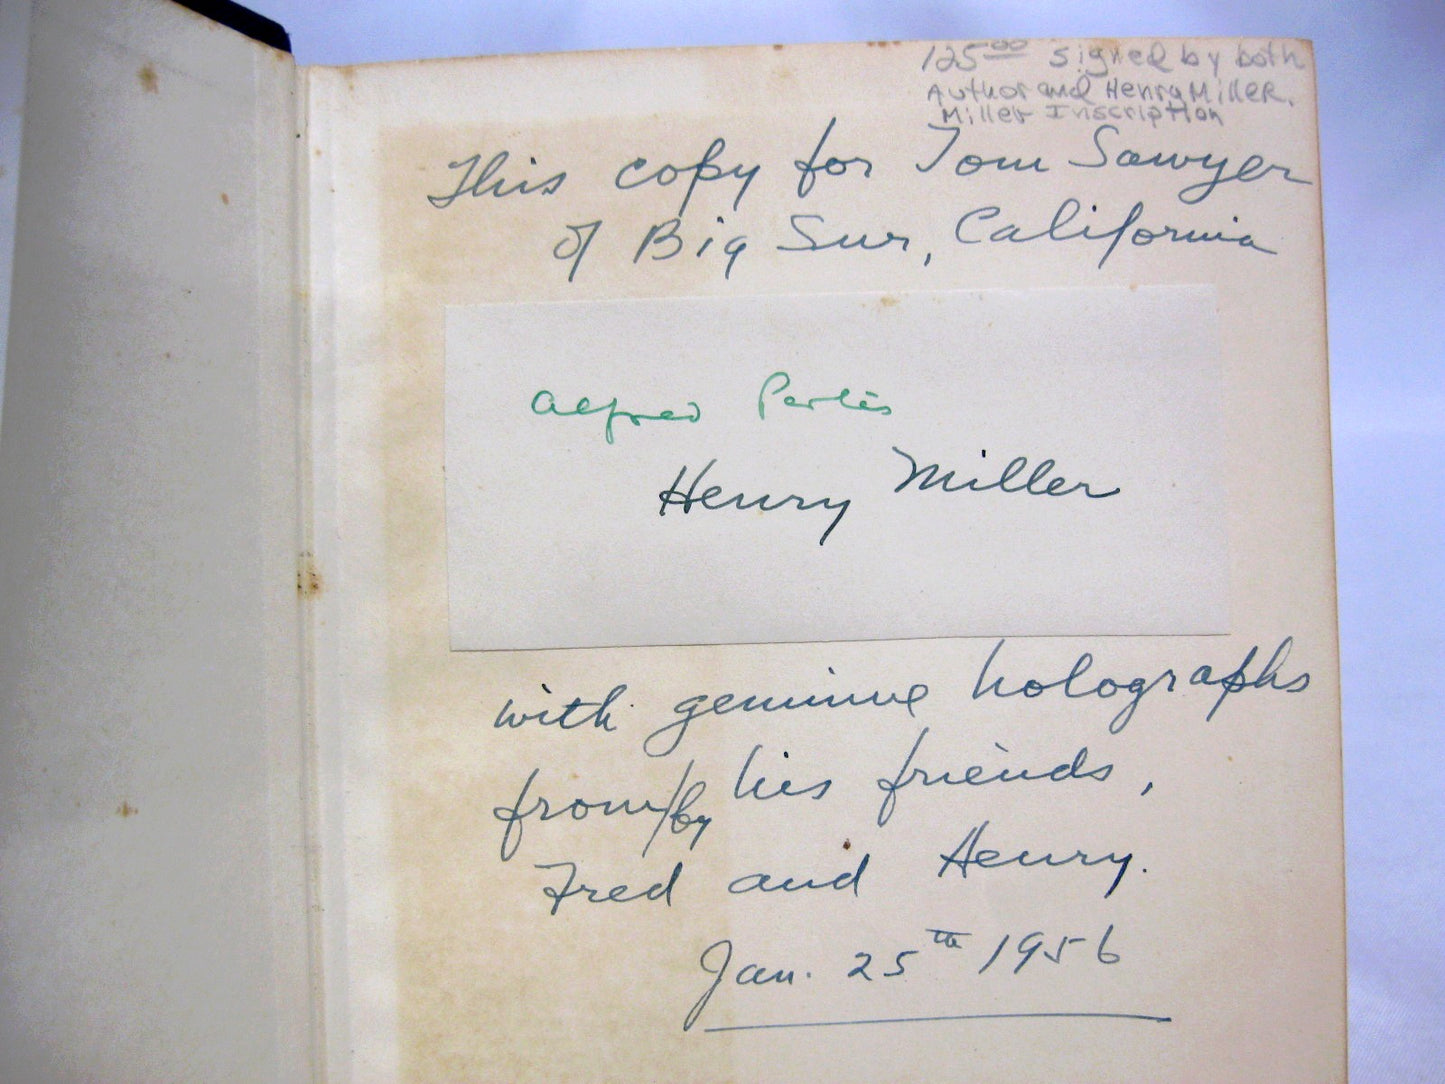 125.00 signed by both
Author and Henry Miller.
Miller Inscription
This copy for Tom Sawyer
of Big Sur, California
Alfred Perlès
Henry Miller
with genuine holographs
from/by his friends,
Fred and Henry.
Jan. 25th 1956